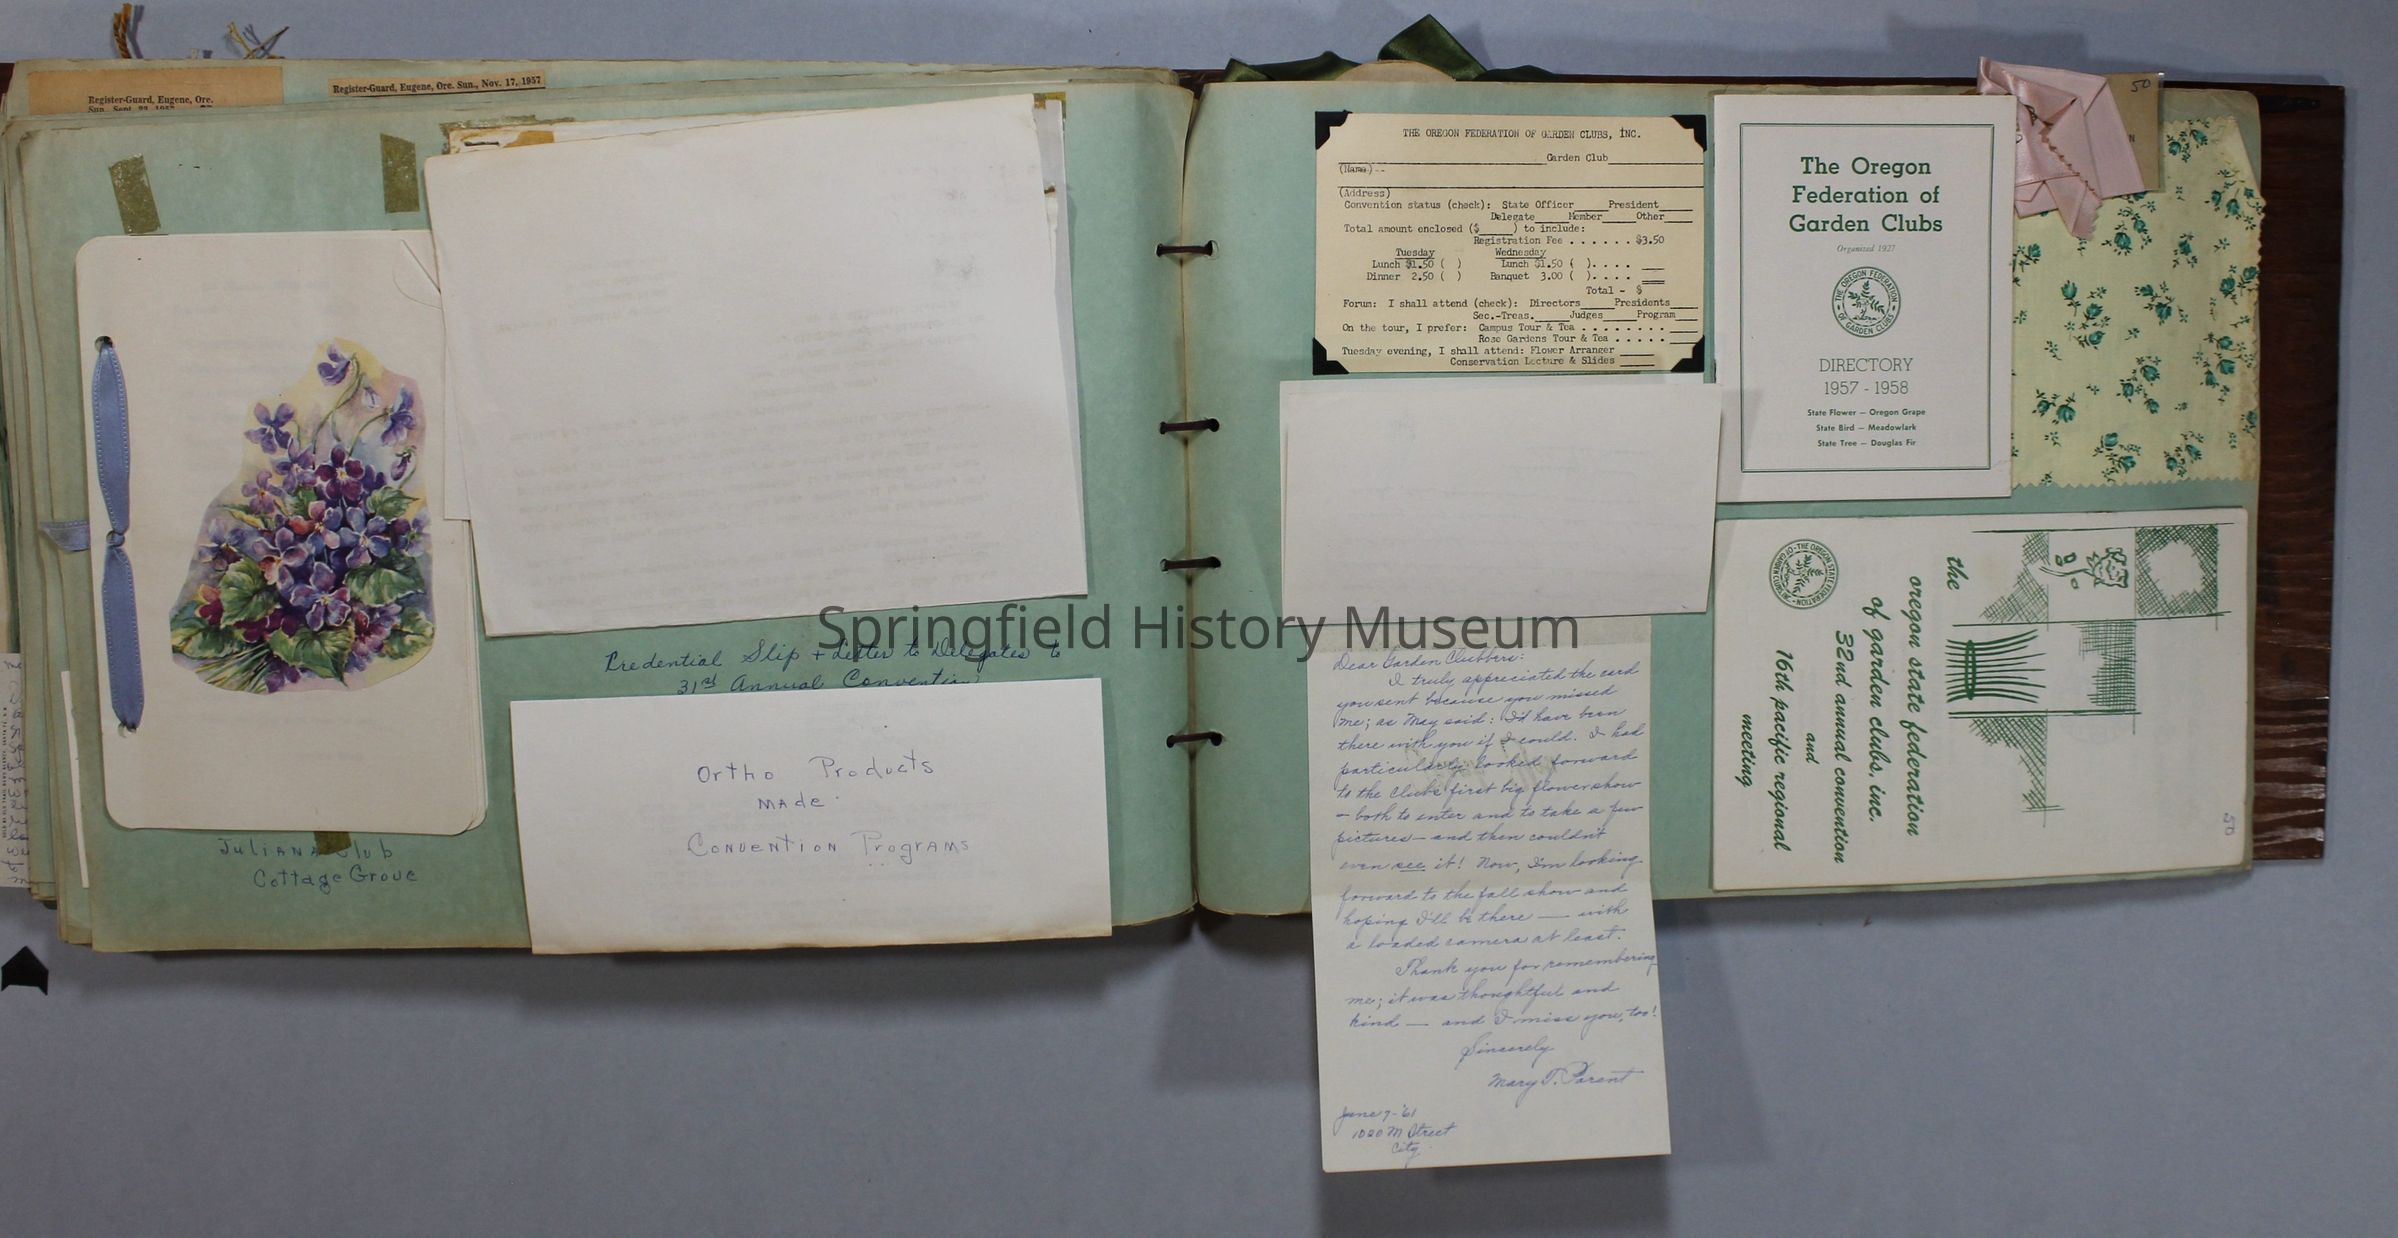 Register-Guard, Eugene, Ore.
Register-Guard, Eugene, Ore. Sun., Nov. 17, 1957
Juliana Club
Cottage Grove
Credential Slip + Letter to Delegates to
31st Annual Convention
Ortho Products
Made
Convention Programs
THE OREGON FEDERATION OF GARDEN CLUBS, INC.
Garden Club
(Name)
(Address)
Convention status (check): State Officer President
Delegate Member Other
Total amount enclosed ($ ) to include:
Registration Fee . . . . . . . $3.50
Tuesday Wednesday
Lunch $1.50 ( ) Lunch $1.50 ( ). . . .
Dinner 2.50 ( ) Banquet 3.00 ( ). . . .
Total - $
Forum: I shall attend (check): Directors Presidents
Sec.-Treas. Judges Program
On the tour, I prefer: Campus Tour & Tea . . . . . . . . .
Rose Gardens Tour & Tea . . . . .
Tuesday evening, I shall attend: Flower Arranger
Conservation Lecture & Slides
Dear Garden Clubbers:
I truly appreciated the card
you sent because you missed
me; as May said: I'd have been
there with you if I could. I had
particularly looked forward
to the Club's first big flower show
— both to enter and to take a few
pictures — and then couldn't
even see it! Now, I'm looking
forward to the fall show and
hoping I'll be there — with
a loaded camera at least.
Thank you for remembering
me; it was thoughtful and
kind — and I miss you, too!
Sincerely
Mary T. Parent
June 7-'61
1020 M Street
City
The Oregon
Federation of
Garden Clubs
Organized 1927
THE OREGON FEDERATION OF GARDEN CLUBS
DIRECTORY
1957 - 1958
State Flower — Oregon Grape
State Bird — Meadowlark
State Tree — Douglas Fir
50
the
oregon state federation
of garden clubs, inc.
32nd annual convention
and
16th pacific regional
meeting
50
Springfield History Museum